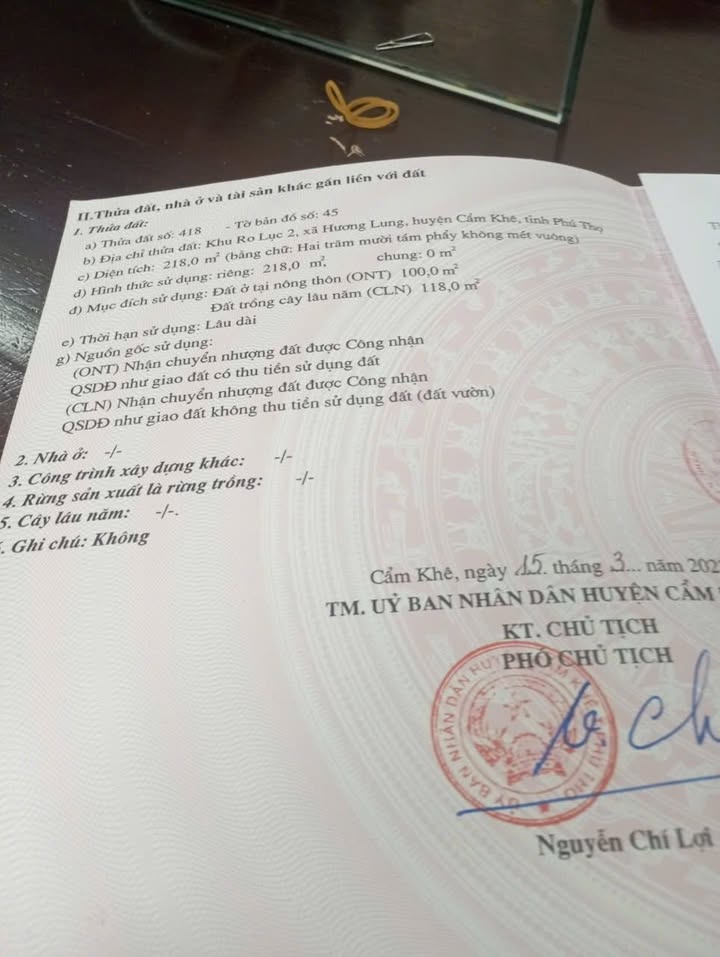 II.Thửa đất, nhà ở và tài sản khác gắn liền với đất
1. Thửa đất:
a) Thửa đất số: 418 - Tờ bản đồ số: 45
b) Địa chỉ thửa đất: Khu Ro Lục 2, xã Hương Lung, huyện Cẩm Khê, tỉnh Phú Thọ
c) Diện tích: 218,0 m² (bằng chữ: Hai trăm mười tám phẩy không mét vuông)
d) Hình thức sử dụng: riêng: 218,0 m², chung: 0 m²
đ) Mục đích sử dụng: Đất ở tại nông thôn (ONT) 100,0 m²
Đất trồng cây lâu năm (CLN) 118,0 m²
e) Thời hạn sử dụng: Lâu dài
g) Nguồn gốc sử dụng:
(ONT) Nhận chuyển nhượng đất được Công nhận
QSDĐ như giao đất có thu tiền sử dụng đất
(CLN) Nhận chuyển nhượng đất được Công nhận
QSDĐ như giao đất không thu tiền sử dụng đất (đất vườn)
2. Nhà ở: -/-
3. Công trình xây dựng khác: -/-
4. Rừng sản xuất là rừng trồng: -/-
5. Cây lâu năm: -/-.
. Ghi chú: Không
Cẩm Khê, ngày 15. tháng 3... năm 202
TM. UỶ BAN NHÂN DÂN HUYỆN CẨM
KT. CHỦ TỊCH
PHÓ CHỦ TỊCH
Nguyễn Chí Lợi